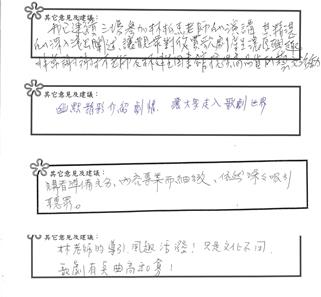 其它意見及建議：
我已連續三場參加林老師的演講，其精湛
的深入淺出闡述，讓觀眾對欣賞歌劇產生濃厚興趣
其它意見及建議：
幽默精彩介紹劇情，讓大家走入歌劇世界
其它意見及建議：
講者準備充分，內容專業而細緻，依然深深吸引
聽眾。
其它意見及建議：
林老師的導引風趣活潑！只是文化不同，
歌劇有點曲高和寡！